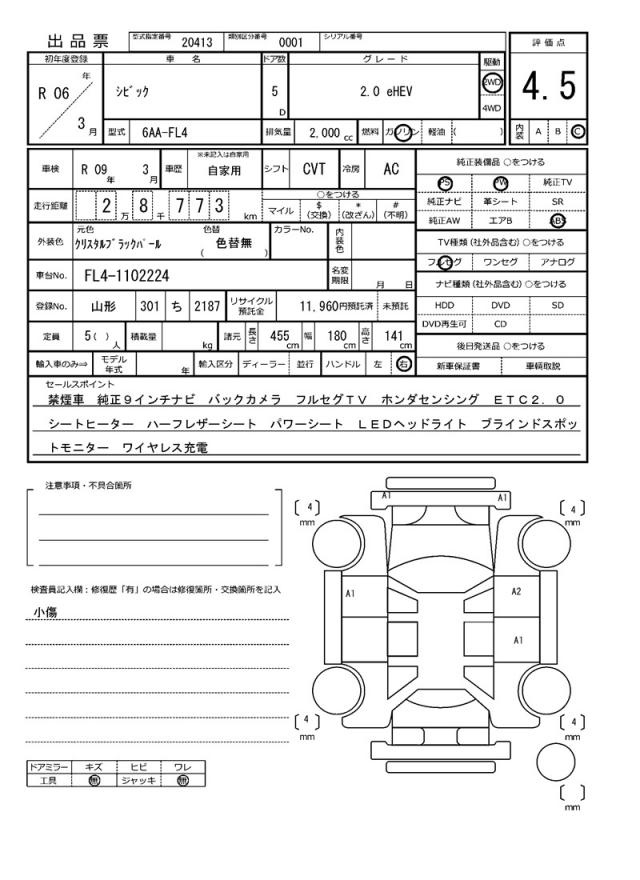 出品票 型式指定番号 20413 類別区分番号 0001 シリアル番号
初年度登録 車名 ドア数 グレード 駆動 評価点
R 06 年 3 月 シビック 5 D 2.0 eHEV 2WD 4WD 4.5
型式 6AA-FL4 排気量 2,000 cc 燃料 ガソリン 軽油 ( ) 内装 A B C
車検 R 09 年 3 月 車歴 ※未記入は自家用 自家用 シフト CVT 冷房 AC 純正装備品 ○をつける
PS PW 純正TV
走行距離 2 万 8 千 7 7 3 km ○をつける 純正ナビ 革シート SR
マイル $ (交換) * (改ざん) # (不明) 純正AW エアB ABS
外装色 元色 クリスタルブラックパール 色替 ( 色替無 ) カラーNo. 内装色 TV種類 (社外品含む) ○をつける
フルセグ ワンセグ アナログ
車台No. FL4-1102224 名変期限 月 日 ナビ種類 (社外品含む) ○をつける
登録No. 山形 301 ち 2187 リサイクル預託金 11,960円預託済 未預託 HDD DVD SD
DVD再生可 CD
定員 5( ) 人 積載量 kg 諸元 長さ 455 cm 幅 180 cm 高さ 141 cm 後日発送品 ○をつける
輸入車のみ⇒ モデル年式 年 輸入区分 ディーラー 並行 ハンドル 左 右 新車保証書 車輌取説
セールスポイント
禁煙車 純正9インチナビ バックカメラ フルセグTV ホンダセンシング ETC2.0
シートヒーター ハーフレザーシート パワーシート LEDヘッドライト ブラインドスポッ
トモニター ワイヤレス充電
注意事項・不具合箇所
検査員記入欄：修復歴「有」の場合は修復箇所・交換箇所を記入
小傷
ドアミラー キズ ヒビ ワレ
工具 無 ジャッキ 無
A1 A1
[ 4 ] mm [ 4 ] mm
A1 A2
A1
[ 4 ] mm [ 4 ] mm
[ ] mm